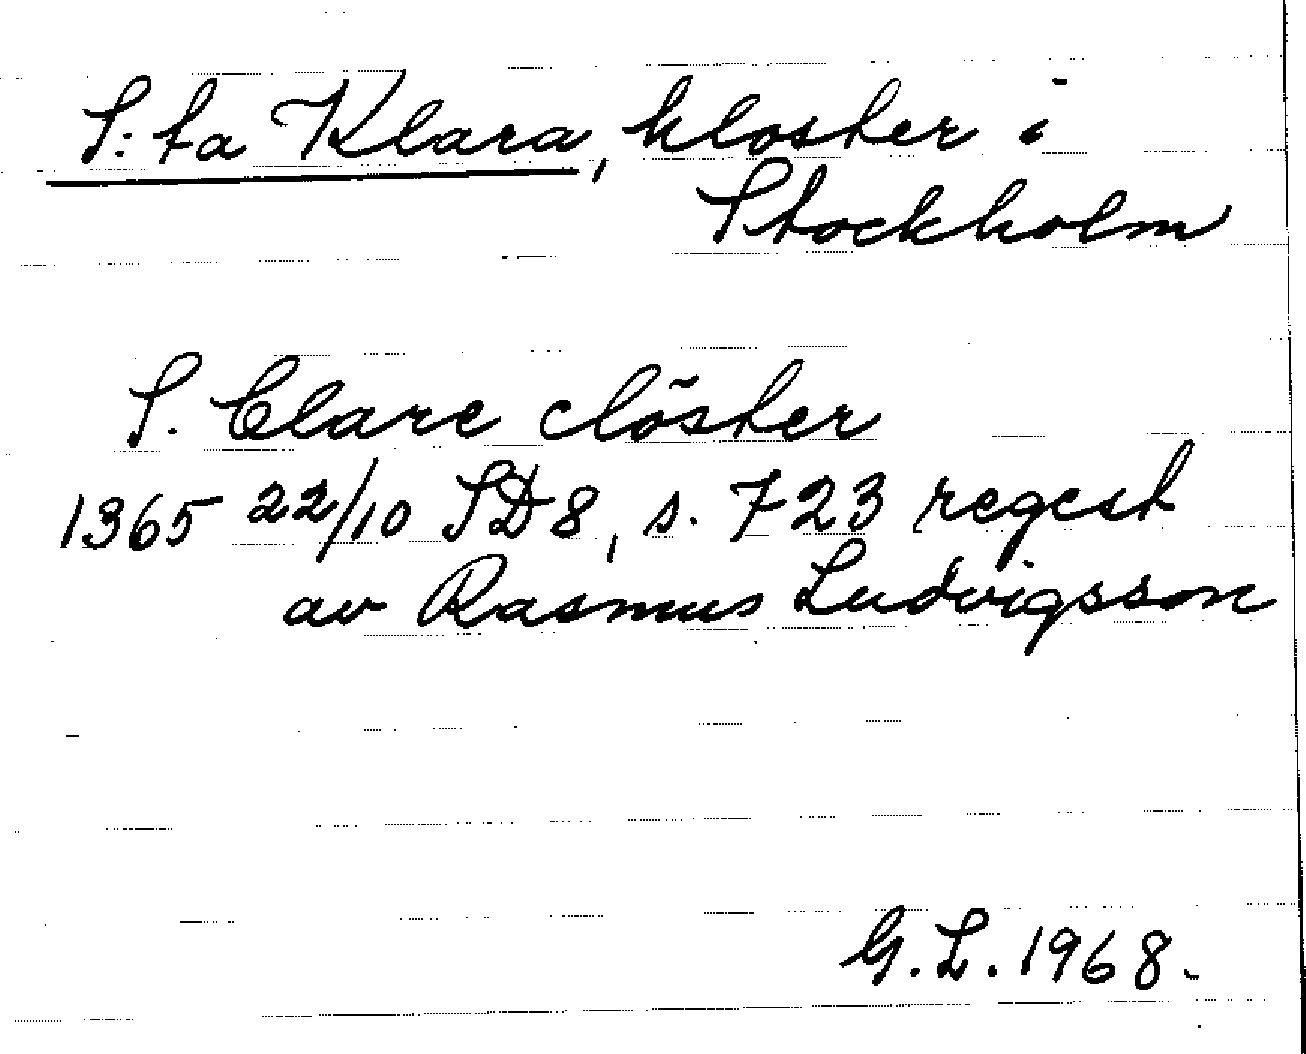 S:ta Klara, kloster i
Stockholm
S. Clare clöster
1365 22/10 SD 8, s. 723 regest
av Rasmus Ludvigsson
G. L. 1968.